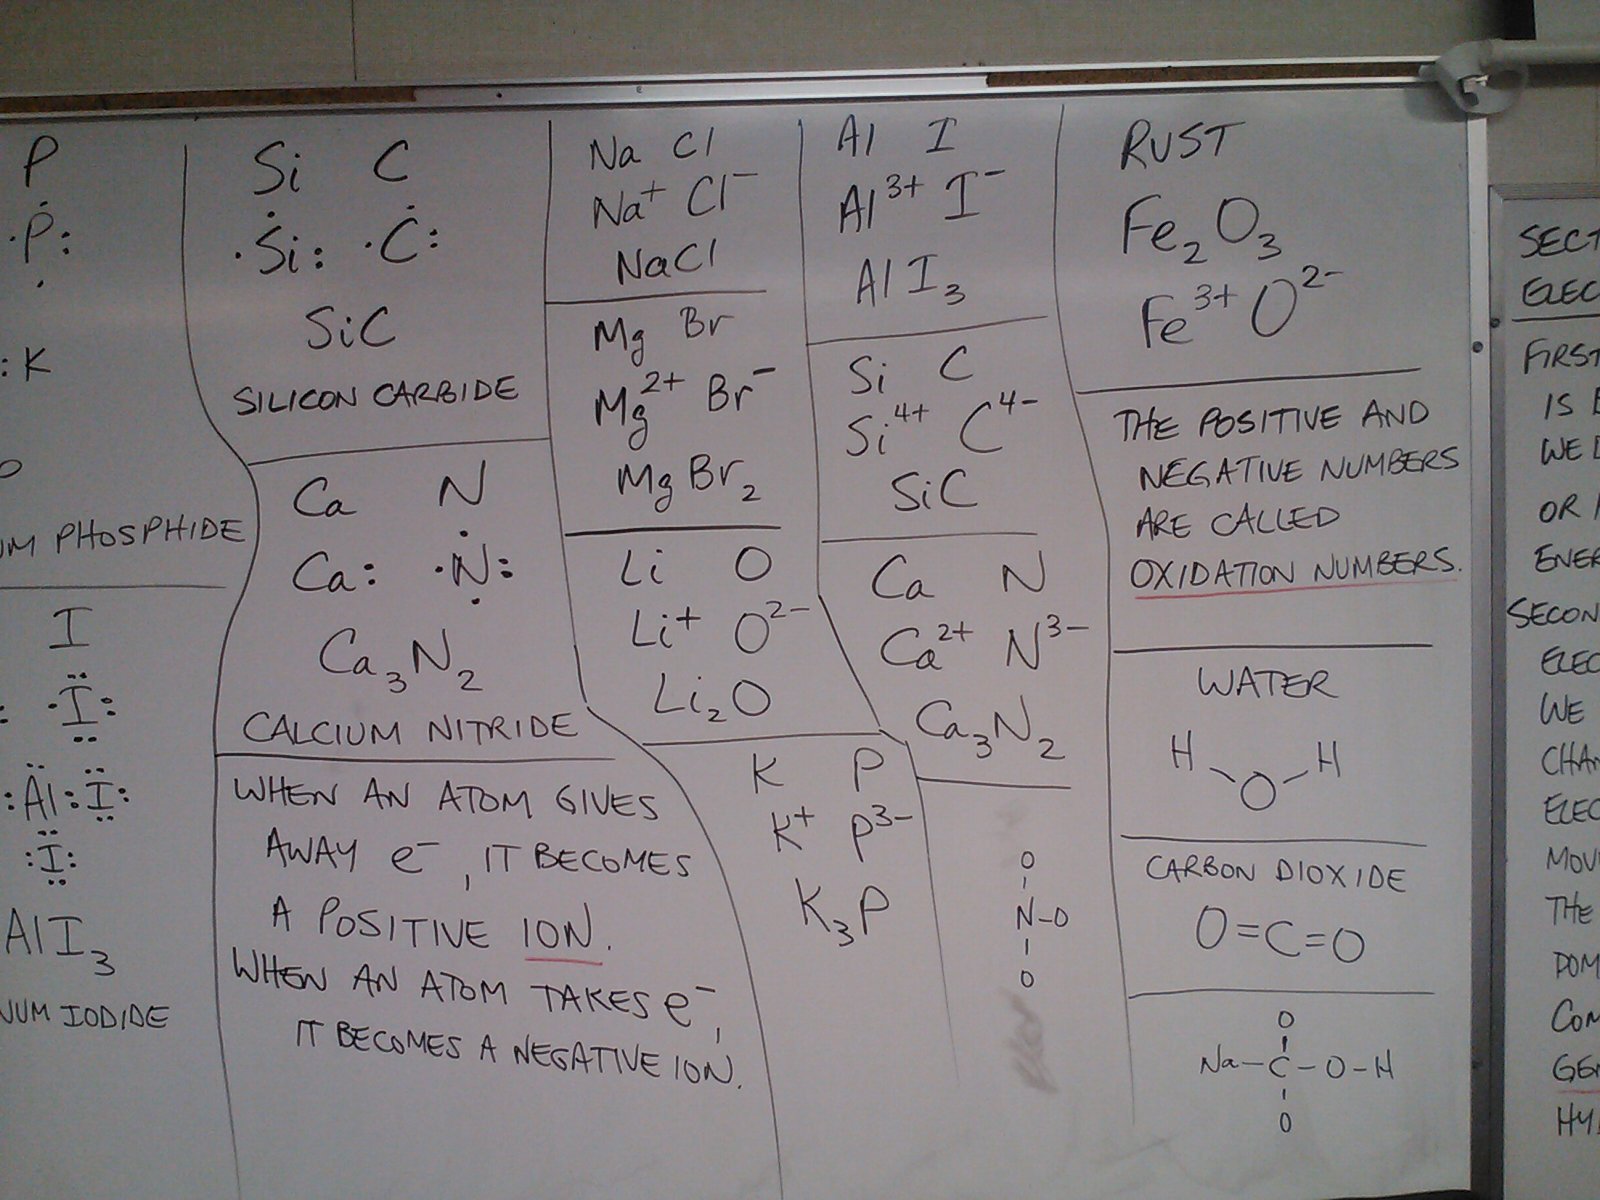 P
·P:
:K
PHOSPHIDE
I
·I:
:Al:I:
:I:
AlI₃
IODIDE
Si C
·Si: ·C:
SiC
SILICON CARBIDE
Ca N
Ca: ·N:
Ca₃N₂
CALCIUM NITRIDE
WHEN AN ATOM GIVES
AWAY e⁻, IT BECOMES
A POSITIVE ION.
WHEN AN ATOM TAKES e⁻,
IT BECOMES A NEGATIVE ION.
Na Cl
Na⁺ Cl⁻
NaCl
Mg Br
Mg²⁺ Br⁻
MgBr₂
Li O
Li⁺ O²⁻
Li₂O
K P
K⁺ P³⁻
K₃P
Al I
Al³⁺ I⁻
AlI₃
Si C
Si⁴⁺ C⁴⁻
SiC
Ca N
Ca²⁺ N³⁻
Ca₃N₂
O
N-O
O
RUST
Fe₂O₃
Fe³⁺O²⁻
THE POSITIVE AND
NEGATIVE NUMBERS
ARE CALLED
OXIDATION NUMBERS.
WATER
H H
O
CARBON DIOXIDE
O=C=O
O
Na-C-O-H
O
SECT
ELEC
FIRST
IS
WE
OR
ENER
SECON
ELEC
WE
CHAN
ELEC
MOV
THE
DOM
COM
GEN
HY